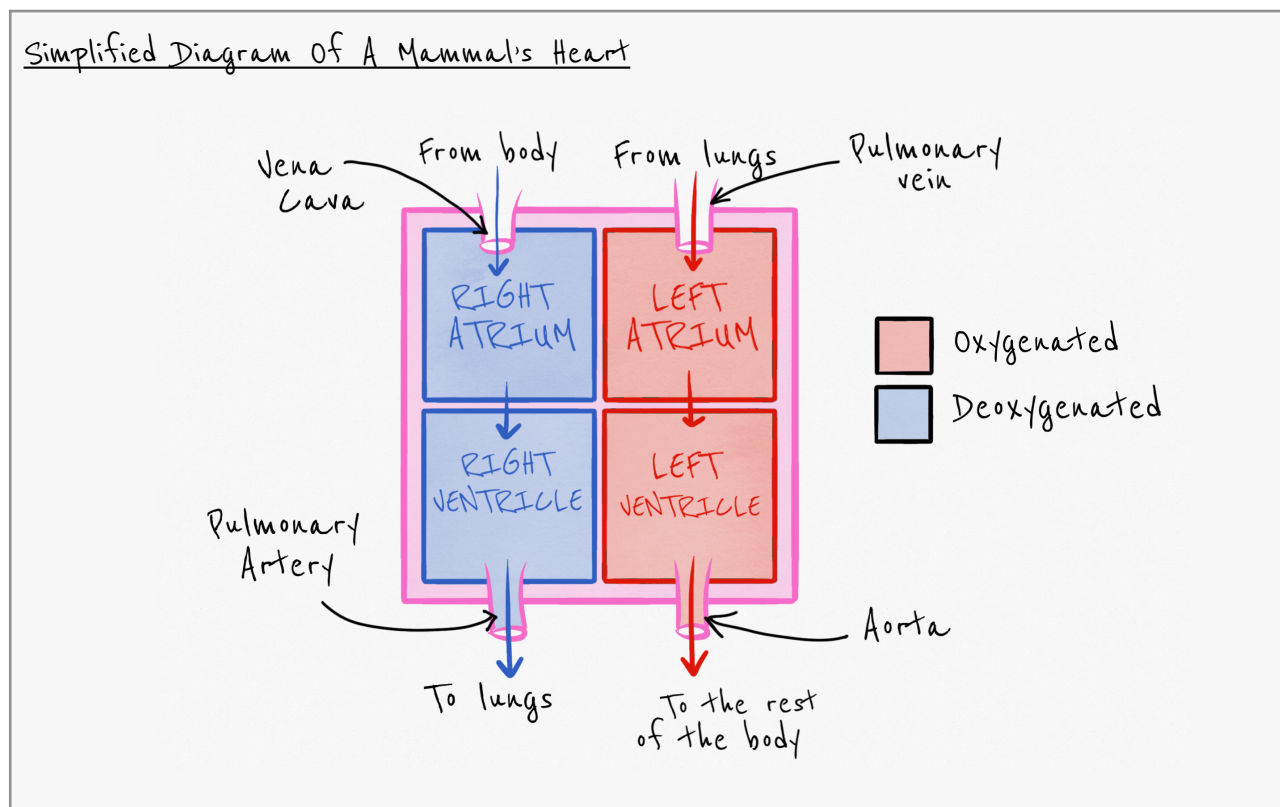 Simplified Diagram Of A Mammal's Heart
Vena
Cava
From body
From lungs
Pulmonary
vein
RIGHT
ATRIUM
LEFT
ATRIUM
Oxygenated
Deoxygenated
RIGHT
VENTRICLE
LEFT
VENTRICLE
Pulmonary
Artery
Aorta
To lungs
To the rest
of the body